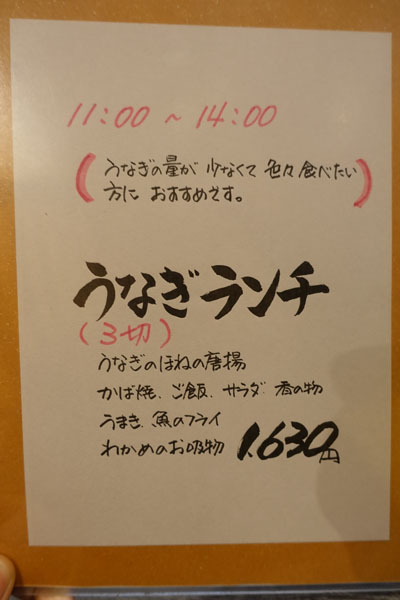 11:00 ~ 14:00
(うなぎの量が 少なくて 色々 食べたい
方に おすすめです。)
うなぎランチ
(3切)
うなぎのほねの唐揚
かば焼、ご飯、サラダ 香の物
うまき、魚のフライ
わかめのお吸物 1,630円